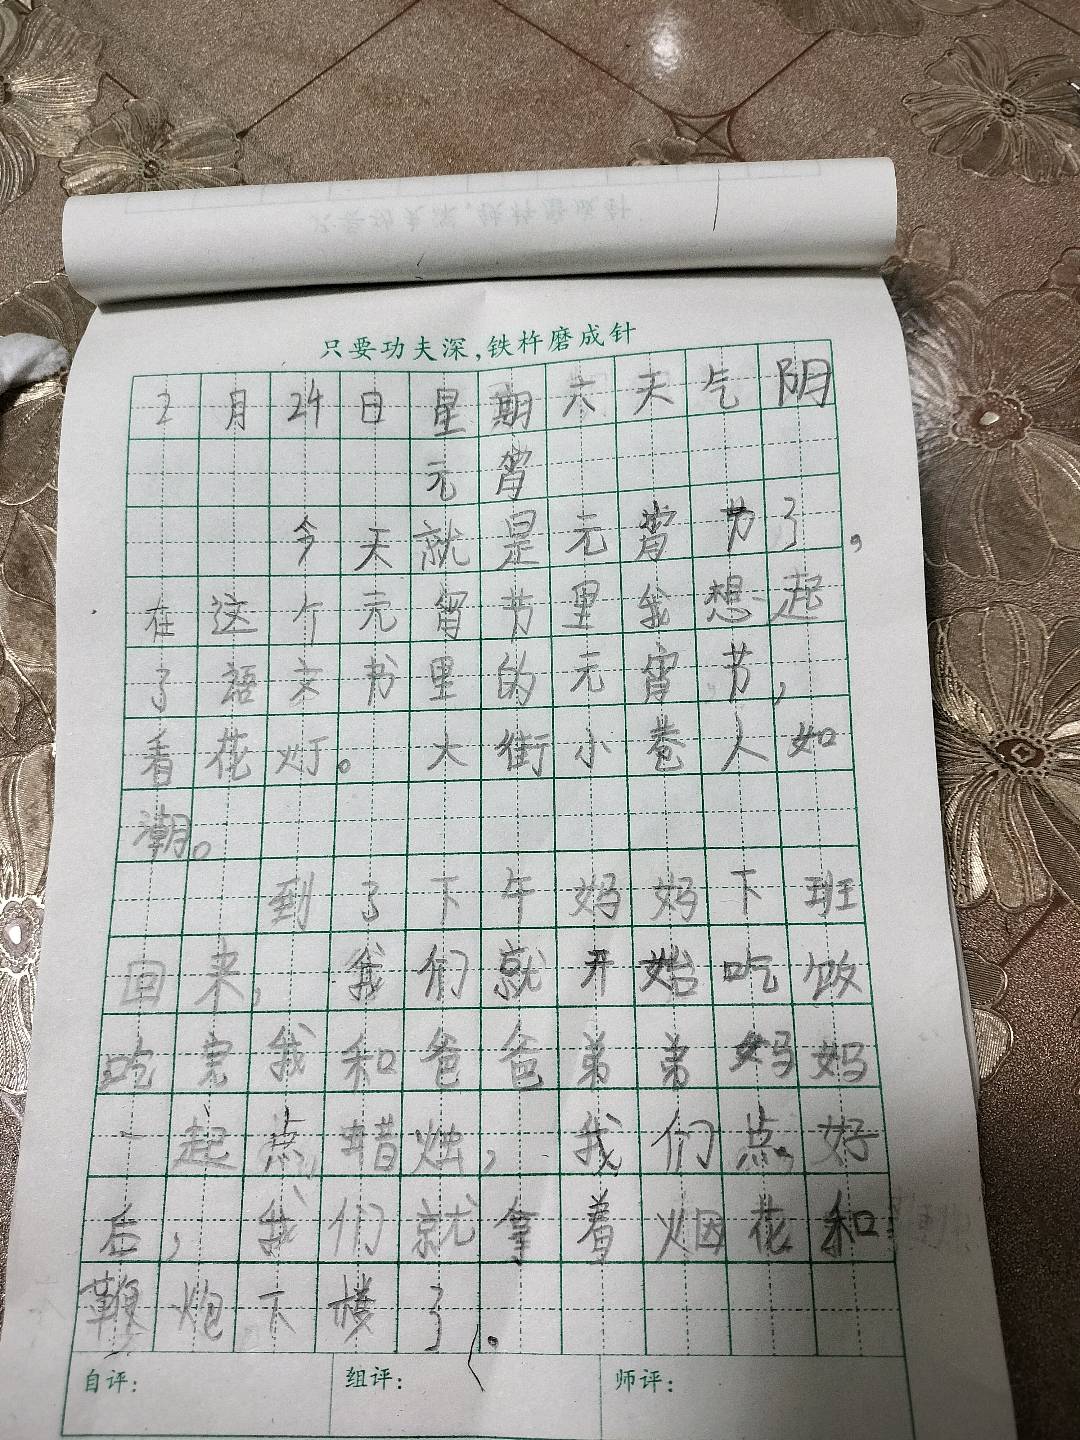 只要功夫深,铁杵磨成针
2月24日星期六天气阴
元宵
今天就是元宵节了，
在这个元宵节里我想起
了语文书里的元宵节，
看花灯。大街小巷人如
潮。
到了下午妈妈下班
回来，我们就开始吃饭
吃完我和爸爸弟弟妈妈
一起点蜡烛，我们点好
后，我们就拿着烟花和
鞭炮下楼了。
自评： 组评： 师评：